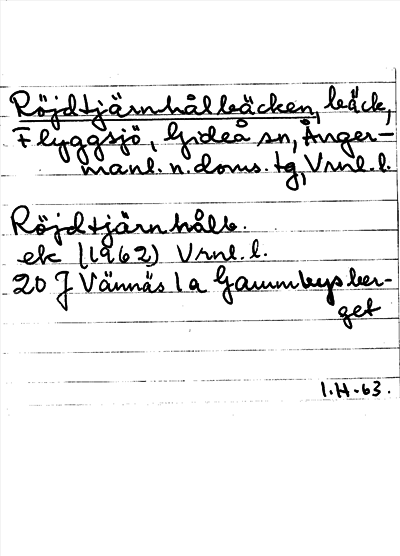 Röjdtjärnhålbäcken, bäck,
Flyggsjö, Gideå sn, Ånger-
manl. n. doms. tg, Vrnl. l.
Röjdtjärnhålb.
ek (1962) Vrnl. l.
20 J Vännäs 1 a Gammbysber-
get
I.H-63.